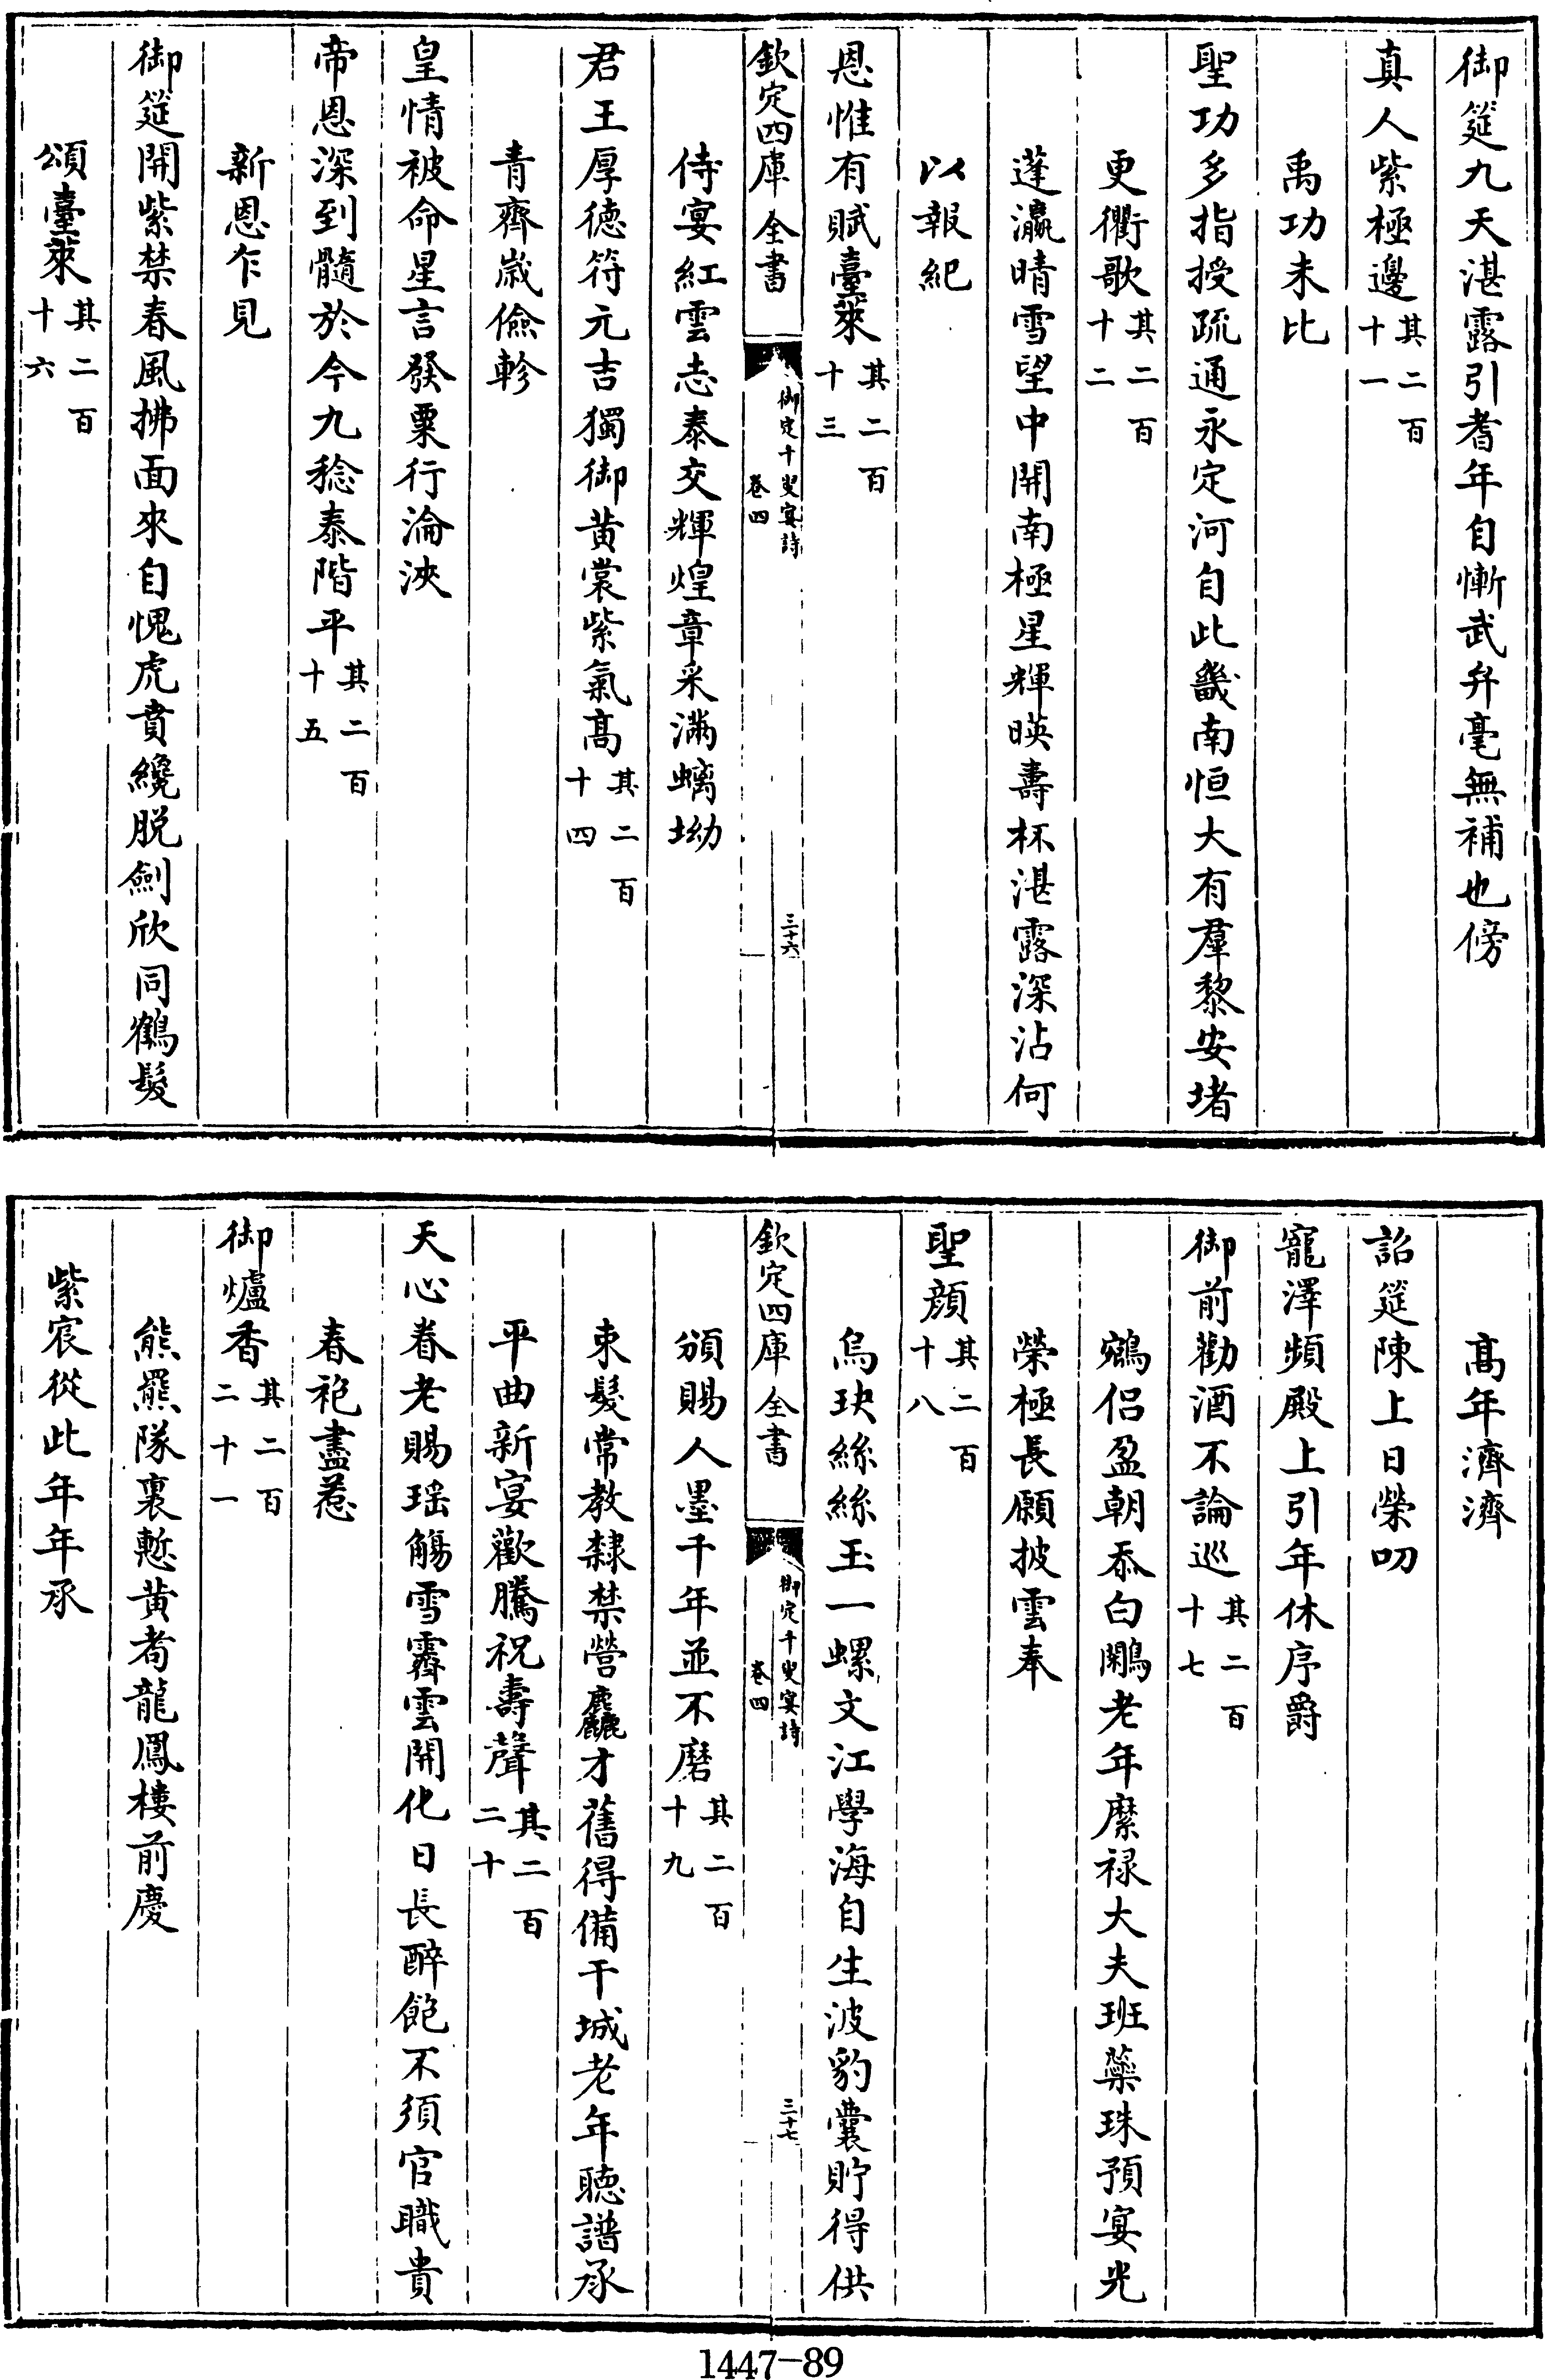 御筵九天湛露引耆年自慚武弁毫無補也傍
真人紫極邊其二百十一
禹功未比
聖功多指授疏通永定河自此畿南恒大有羣黎安堵
更衢歌其二百十二
蓬瀛晴雪望中開南極星輝暎壽杯湛露深沾何
以報紀
恩惟有賦臺萊其二百十三
欽定四庫全書
御定千叟宴詩
卷四
三十六
侍宴紅雲志泰交輝煌章采滿螭坳
君王厚徳符元吉獨御黄裳紫氣髙其二百十四
青齊嵗儉軫
皇情被命星言發粟行淪浹
帝恩深到髓於今九稔泰階平其二百十五
新恩乍見
御筵開紫禁春風拂面來自愧虎賁纔脱劍欣同鶴髮
頌臺萊其二百十六
髙年濟濟
詔筵陳上日榮叨
寵澤頻殿上引年休序爵
御前勸酒不論巡其二百十七
鵷侣盈朝忝白鷴老年縻禄大夫班蘂珠預宴光
榮極長願披雲奉
聖顔其二百十八
烏玦絲絲玉一螺文江學海自生波豹囊貯得供
欽定四庫全書
御定千叟宴詩
卷四
三十七
頒賜人墨千年並不磨其二百十九
束髮常教隸禁營麤才舊得備干城老年聴譜承
平曲新宴歡騰祝壽聲其二百二十
天心眷老賜瑶觴雪霽雲開化日長醉飽不須官職貴
春袍盡惹
御爐香其二百二十一
熊羆隊裏慙黄耇龍鳳樓前慶
紫宸從此年年承
1447-89